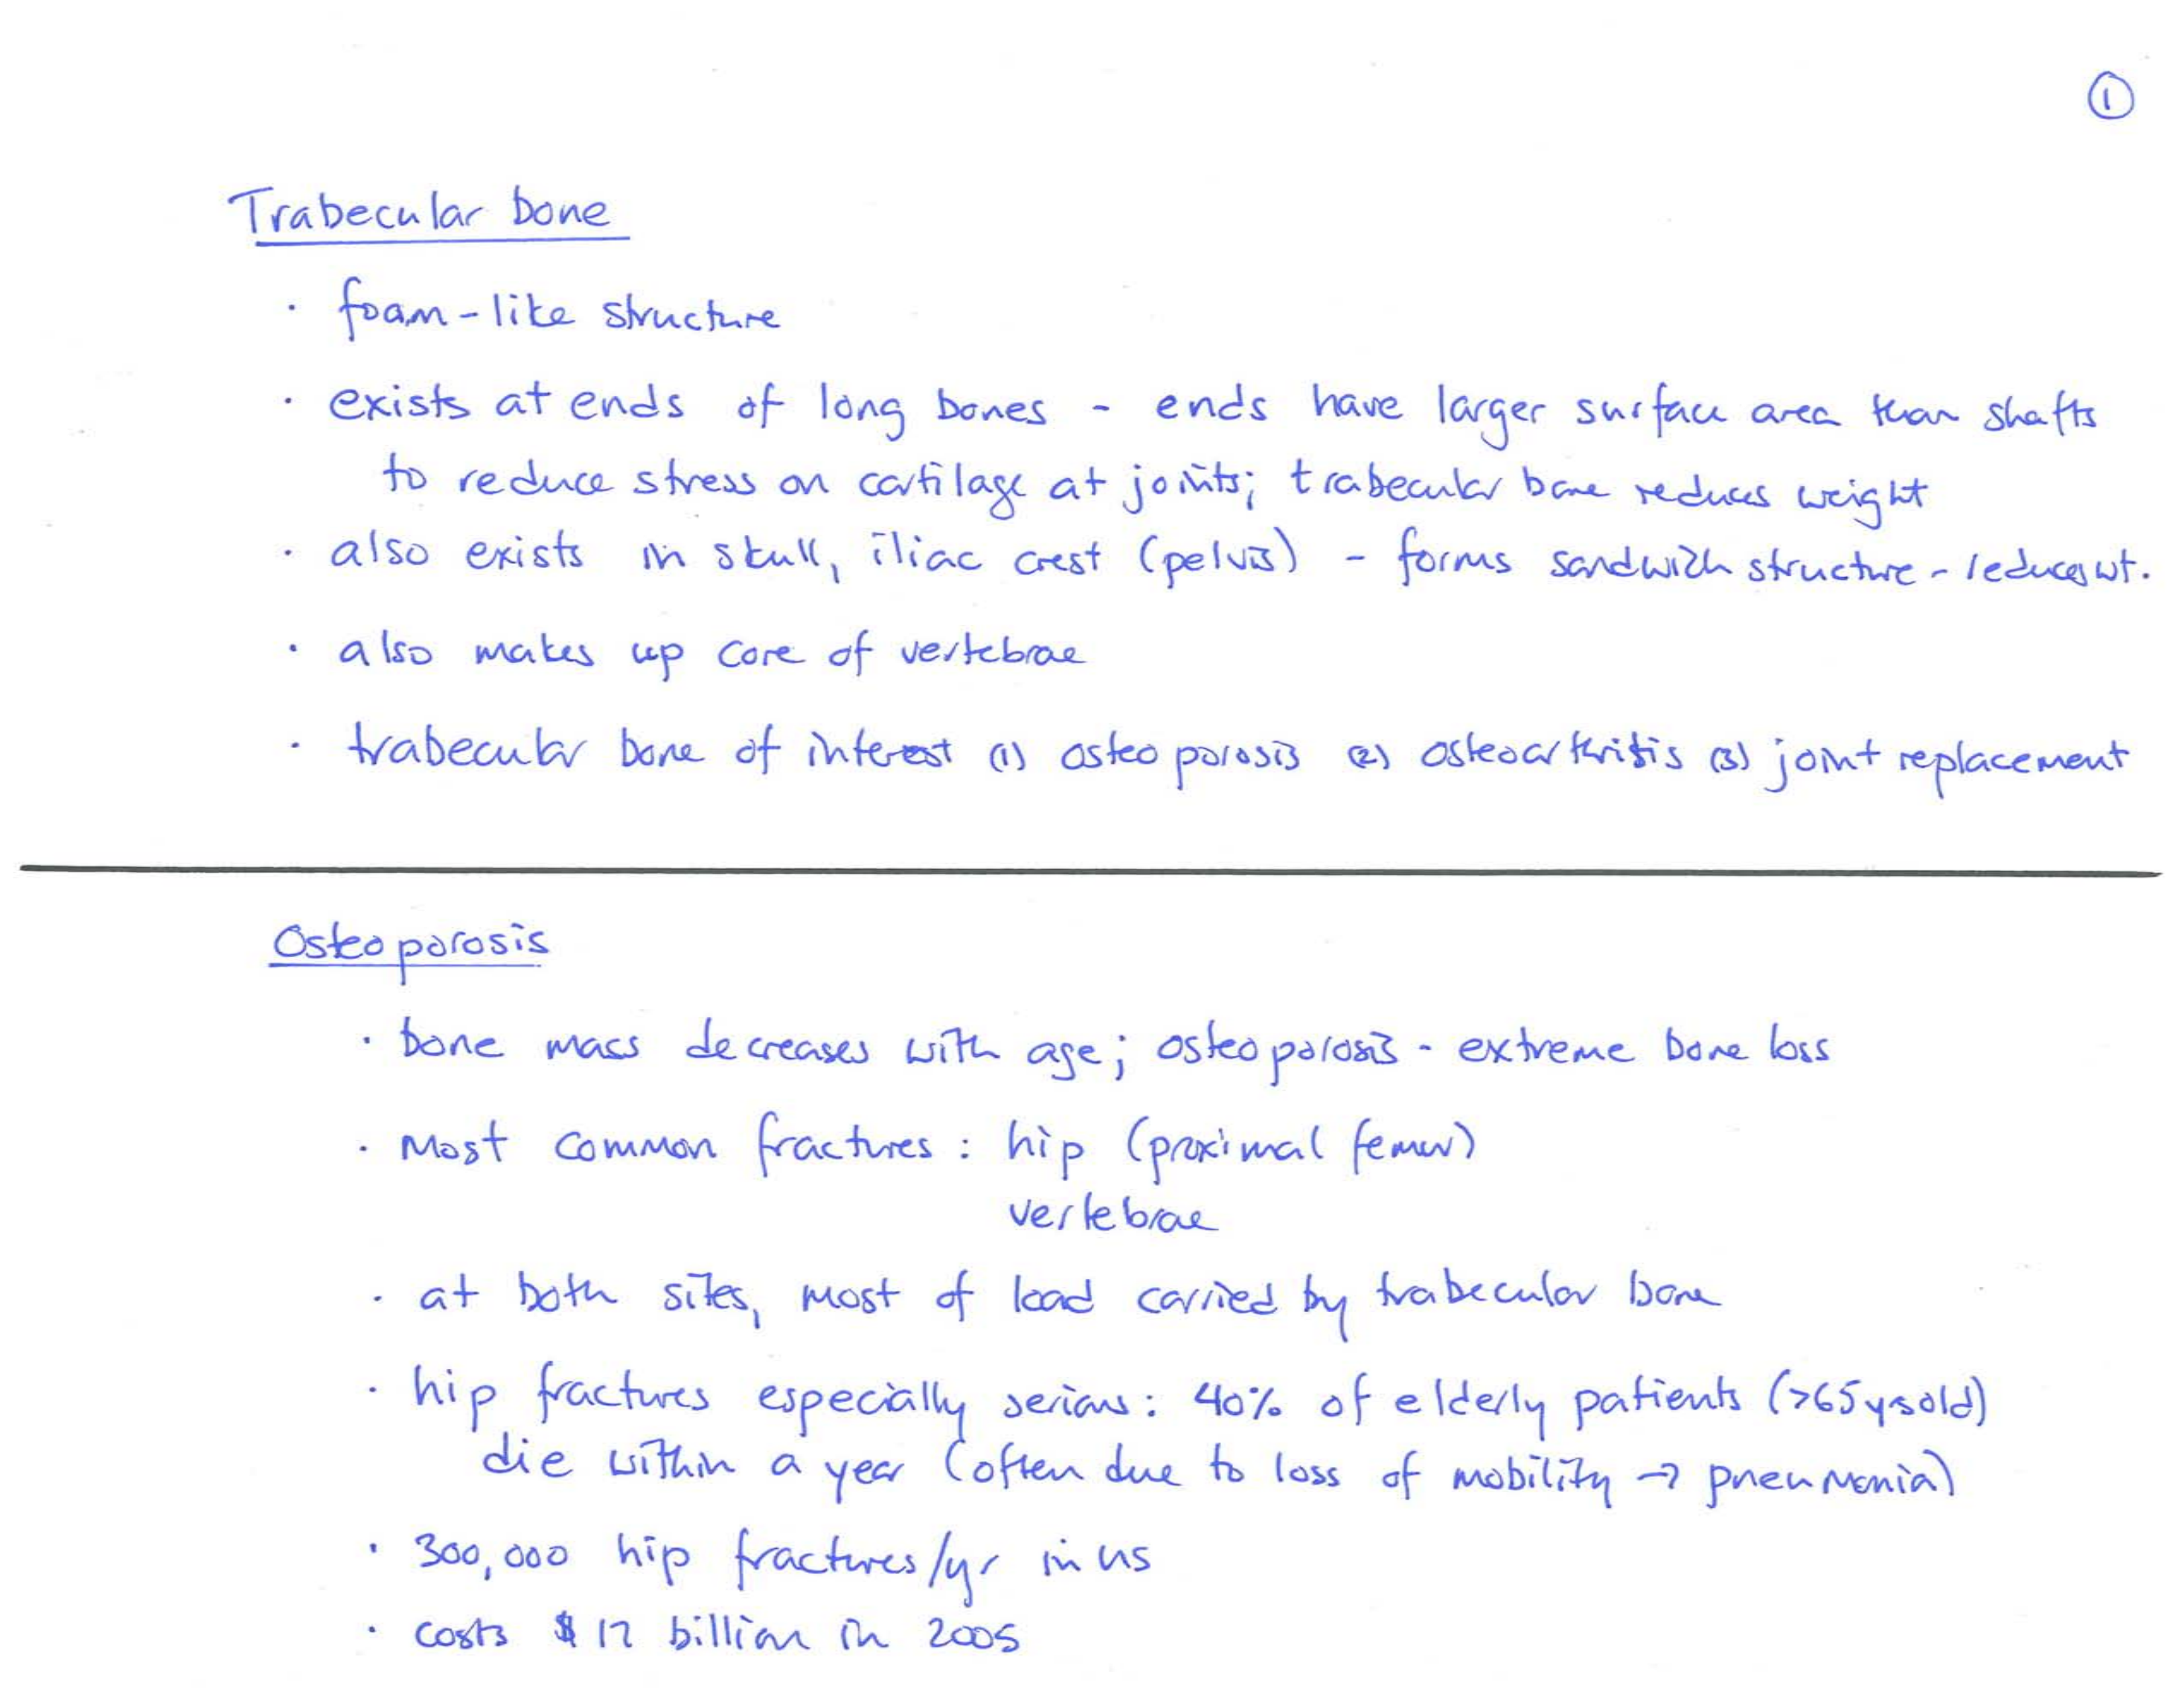 ①
Trabecular bone
· foam-like structure
· exists at ends of long bones - ends have larger surface area than shafts
to reduce stress on cartilage at joints; trabecular bone reduces weight
· also exists in skull, iliac crest (pelvis) - forms sandwich structure - reduces wt.
· also makes up core of vertebrae
· trabecular bone of interest (1) osteoporosis (2) osteoarthritis (3) joint replacement
Osteoporosis
· bone mass decreases with age; osteoporosis - extreme bone loss
· Most common fractures: hip (proximal femur)
vertebrae
· at both sites, most of load carried by trabecular bone
· hip fractures especially serious: 40% of elderly patients (>65ysold)
die within a year (often due to loss of mobility → pneumonia)
· 300,000 hip fractures/yr in US
· costs $17 billion in 2005